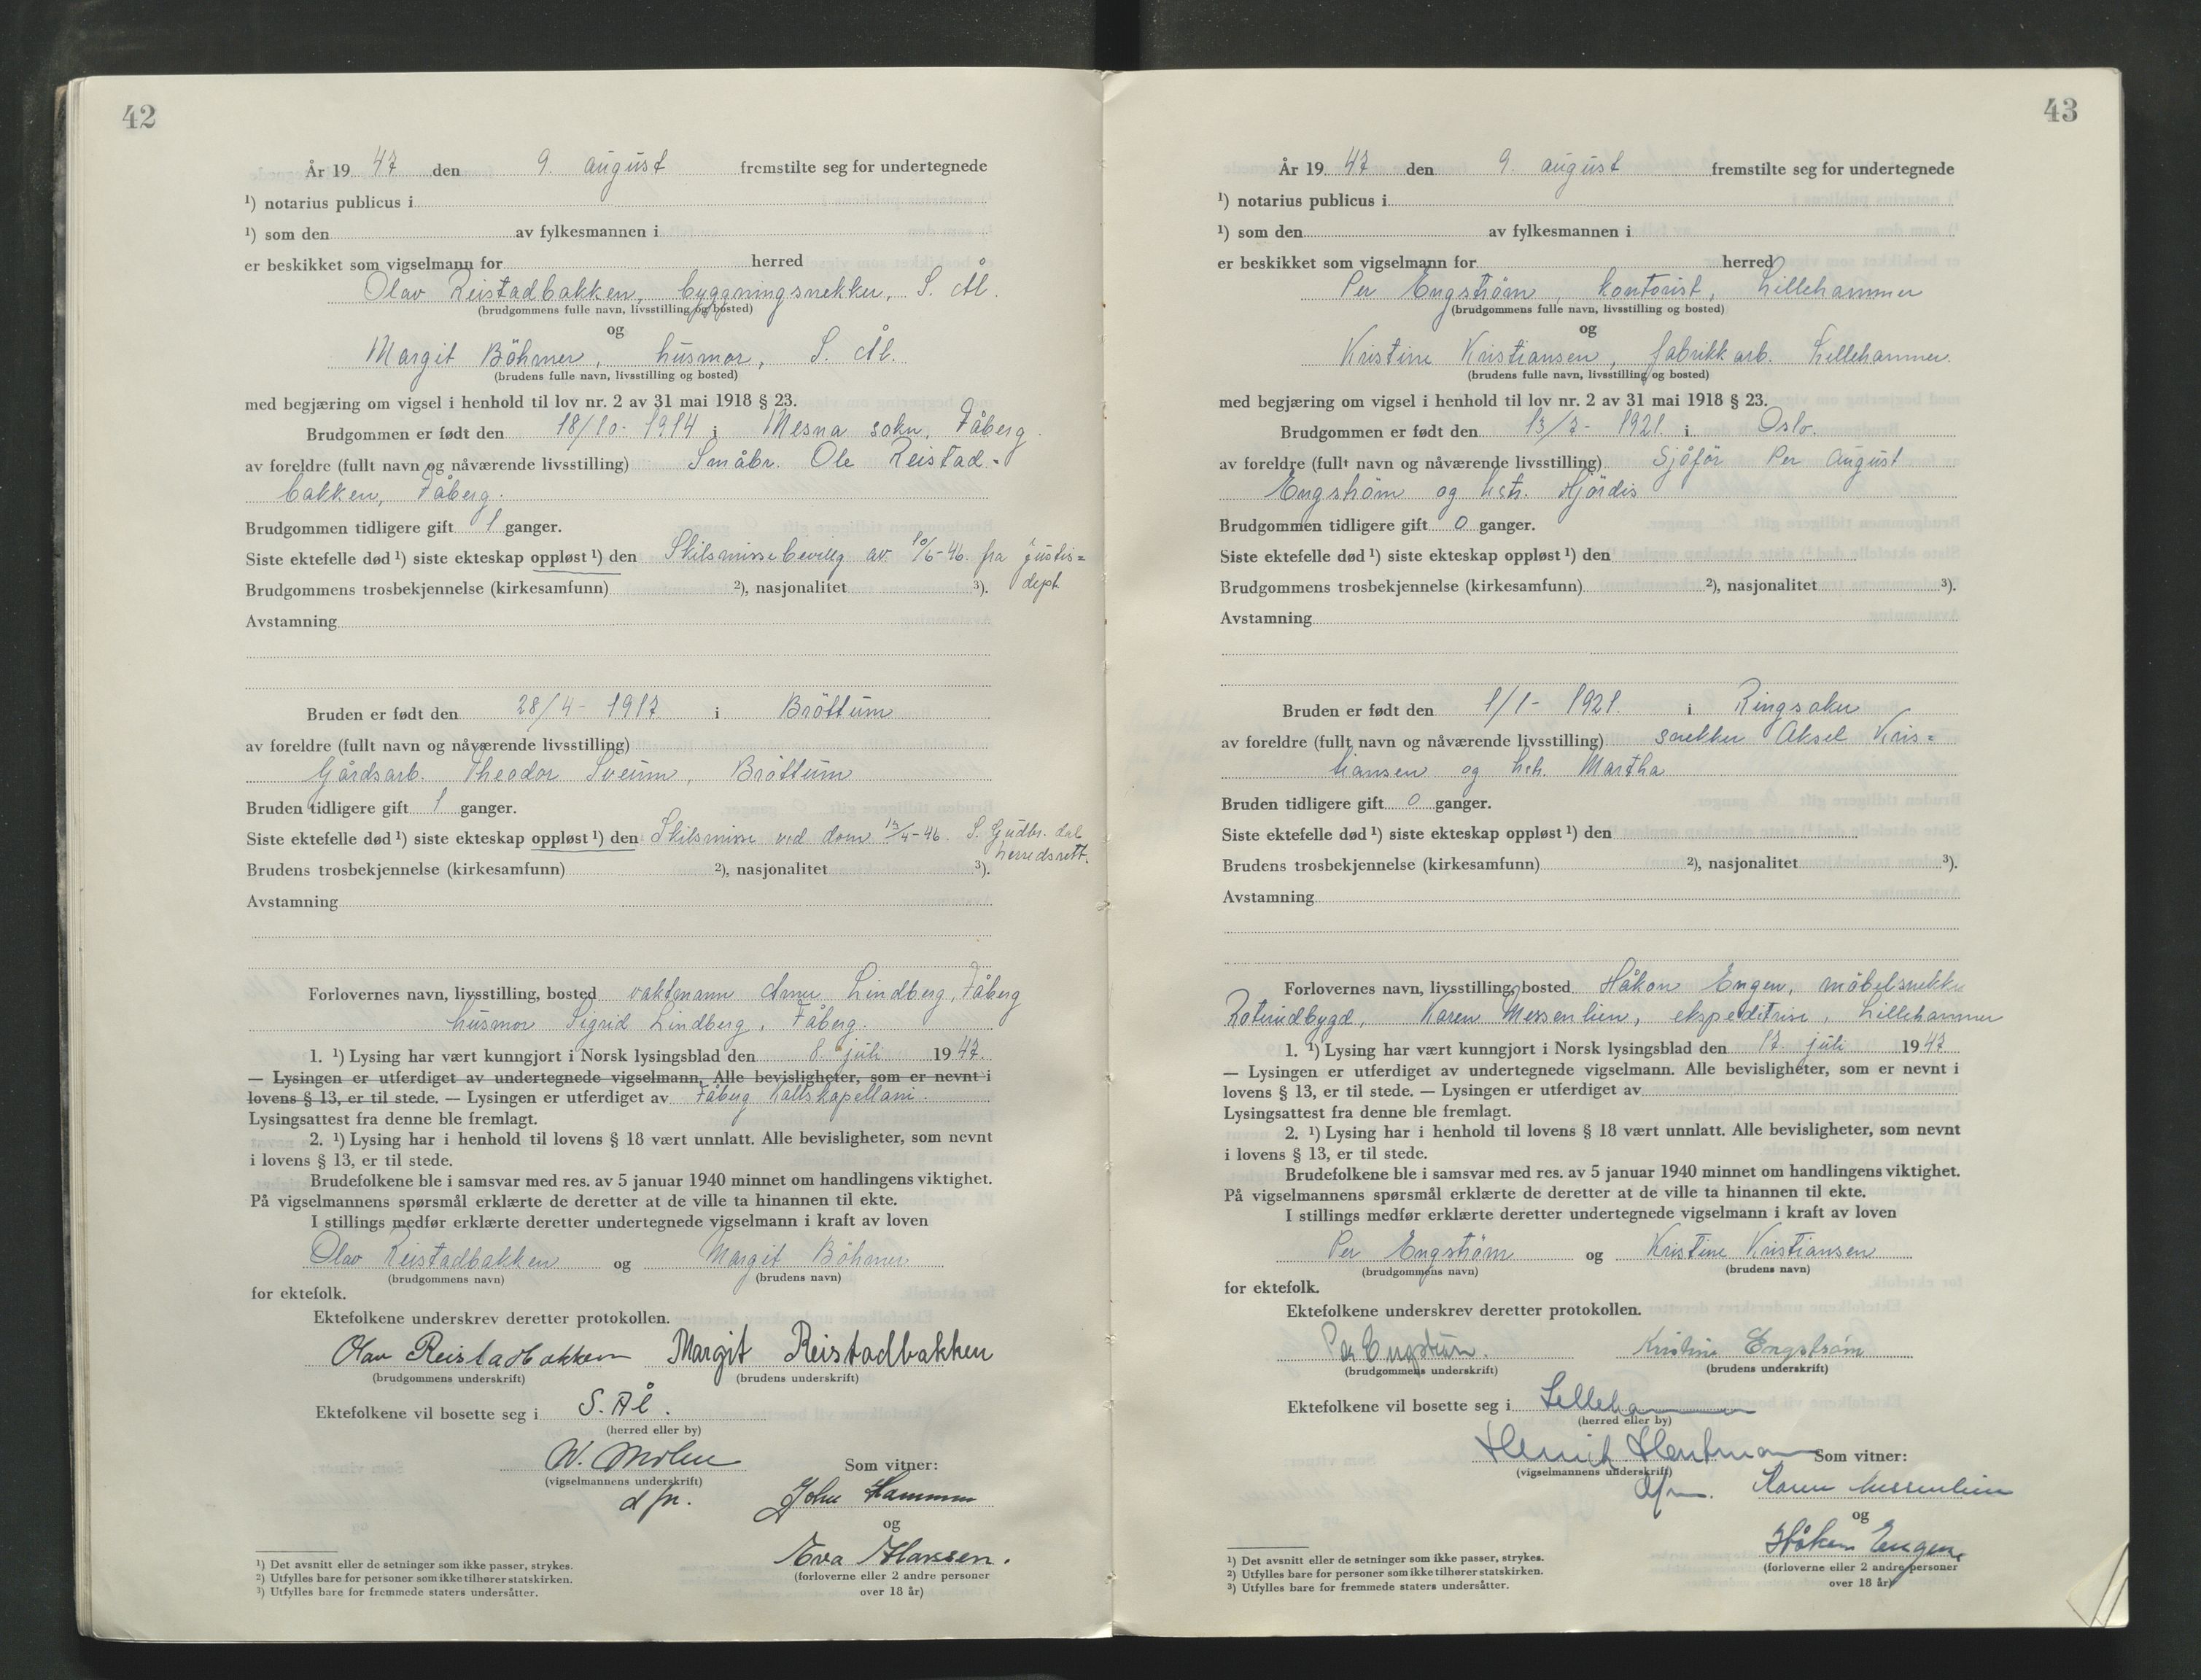 42
År 19 47 den 9. august fremstilte seg for undertegnede
¹) notarius publicus i
¹) som den av fylkesmannen i
er beskikket som vigselmann for herred
Olav Reistadbakken, byggningsnekker, S. Ål.
(brudgommens fulle navn, livsstilling og bosted)
og
Margit Böhmer, husmor, S. Ål.
(brudens fulle navn, livsstilling og bosted)
med begjæring om vigsel i henhold til lov nr. 2 av 31 mai 1918 § 23.
Brudgommen er født den 18/10- 1914 i Mesna sokn, Fåberg.
av foreldre (fullt navn og nåværende livsstilling) Småbr. Ole Reistad-
bakken, Fåberg.
Brudgommen tidligere gift 1 ganger.
Siste ektefelle død ¹) siste ekteskap oppløst ¹) den Skilsmissebevillg av 10/5-46. fra justis=
dept
Brudgommens trosbekjennelse (kirkesamfunn) ²), nasjonalitet ³).
Avstamning
Bruden er født den 28/4- 1917 i Bröttum
av foreldre (fullt navn og nåværende livsstilling)
Gårdsarb. Theodor Sveum, Bröttum
Bruden tidligere gift 1 ganger.
Siste ektefelle død ¹) siste ekteskap oppløst ¹) den Skilsmisse ved dom 13/4-46. S. Gudbr. dal
herredsrett.
Brudens trosbekjennelse (kirkesamfunn) ²), nasjonalitet ³).
Avstamning
Forlovernes navn, livsstilling, bosted vaktmann Arne Lindberg, Fåberg
husmor Sigrid Lindberg, Fåberg.
1. ¹) Lysing har vært kunngjort i Norsk lysingsblad den 8. juli 19 47.
— Lysingen er utferdiget av undertegnede vigselmann. Alle bevisligheter, som er nevnt i
lovens § 13, er til stede. — Lysingen er utferdiget av Fåberg kallskapellani.
Lysingsattest fra denne ble fremlagt.
2. ¹) Lysing har i henhold til lovens § 18 vært unnlatt. Alle bevisligheter, som nevnt
i lovens § 13, er til stede.
Brudefolkene ble i samsvar med res. av 5 januar 1940 minnet om handlingens viktighet.
På vigselmannens spørsmål erklærte de deretter at de ville ta hinannen til ekte.
I stillings medfør erklærte deretter undertegnede vigselmann i kraft av loven
Olav Reistadbakken og Margit Böhmer
(brudgommens navn) (brudens navn)
for ektefolk.
Ektefolkene underskrev deretter protokollen.
Olav Reistadbakken Margit Reistadbakken
(brudgommens underskrift) (brudens underskrift)
Ektefolkene vil bosette seg i S. Ål.
(herred eller by)
W. Molen
(vigselmannens underskrift) Som vitner:
dfm. John Hammer
og
Eva Hanssen.
(forloverne eller 2 andre personer
over 18 år)
¹) Det avsnitt eller de setninger som ikke passer, strykes.
²) Utfylles bare for personer som ikke tilhører statskirken.
³) Utfylles bare for fremmede staters undersåtter.
43
År 19 47 den 9. august fremstilte seg for undertegnede
¹) notarius publicus i
¹) som den av fylkesmannen i
er beskikket som vigselmann for herred
Per Engström, kontorist, Lillehammer
(brudgommens fulle navn, livsstilling og bosted)
og
Kristine Kristiansen, fabrikkarb. Lillehammer.
(brudens fulle navn, livsstilling og bosted)
med begjæring om vigsel i henhold til lov nr. 2 av 31 mai 1918 § 23.
Brudgommen er født den 13/7- 1921. i Oslo.
av foreldre (fullt navn og nåværende livsstilling) Sjåför Per August
Engström og hstr. Hjördis
Brudgommen tidligere gift 0 ganger.
Siste ektefelle død ¹) siste ekteskap oppløst ¹) den
Brudgommens trosbekjennelse (kirkesamfunn) ²), nasjonalitet ³).
Avstamning
Bruden er født den 1/1- 1921. i Ringsaker
av foreldre (fullt navn og nåværende livsstilling) snekker Aksel Kris=
tiansen og hstr. Martha
Bruden tidligere gift 0 ganger.
Siste ektefelle død ¹) siste ekteskap oppløst ¹) den
Brudens trosbekjennelse (kirkesamfunn) ²), nasjonalitet ³).
Avstamning
Forlovernes navn, livsstilling, bosted Håkon Engen, möbelsnekker
Roterudbygd, Karen Messenlien, ekspeditrise, Lillehammer
1. ¹) Lysing har vært kunngjort i Norsk lysingsblad den 17. juli 19 47
— Lysingen er utferdiget av undertegnede vigselmann. Alle bevisligheter, som er nevnt i
lovens § 13, er til stede. — Lysingen er utferdiget av
Lysingsattest fra denne ble fremlagt.
2. ¹) Lysing har i henhold til lovens § 18 vært unnlatt. Alle bevisligheter, som nevnt
i lovens § 13, er til stede.
Brudefolkene ble i samsvar med res. av 5 januar 1940 minnet om handlingens viktighet.
På vigselmannens spørsmål erklærte de deretter at de ville ta hinannen til ekte.
I stillings medfør erklærte deretter undertegnede vigselmann i kraft av loven
Per Engström og Kristine Kristiansen
(brudgommens navn) (brudens navn)
for ektefolk.
Ektefolkene underskrev deretter protokollen.
Per Engström. Kristine Engström
(brudgommens underskrift) (brudens underskrift)
Ektefolkene vil bosette seg i Lillehammer
(herred eller by)
Som vitner:
(vigselmannens underskrift)
dfm. Karen Messenlien
og
Håkon Engen
(forloverne eller 2 andre personer
over 18 år)
¹) Det avsnitt eller de setninger som ikke passer, strykes.
²) Utfylles bare for personer som ikke tilhører statskirken.
³) Utfylles bare for fremmede staters undersåtter.